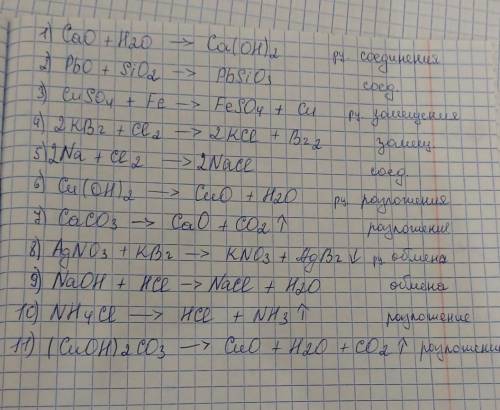 1) CaO + H2O → Ca(OH)2 р. соединения
2) PbO + SiO2 → PbSiO3 соед.
3) CuSO4 + Fe → FeSO4 + Cu р. замещения
4) 2KBr + Cl2 → 2KCl + Br2 замещ.
5) 2Na + Cl2 → 2NaCl соед.
6) Cu(OH)2 → CuO + H2O р. разложения
7) CaCO3 → CaO + CO2 ↑ разложение
8) AgNO3 + KBr → KNO3 + AgBr ↓ р. обмена
9) NaOH + HCl → NaCl + H2O обмена
10) NH4Cl → HCl + NH3 ↑ разложение
11) (CuOH)2CO3 → CuO + H2O + CO2 ↑ разложени